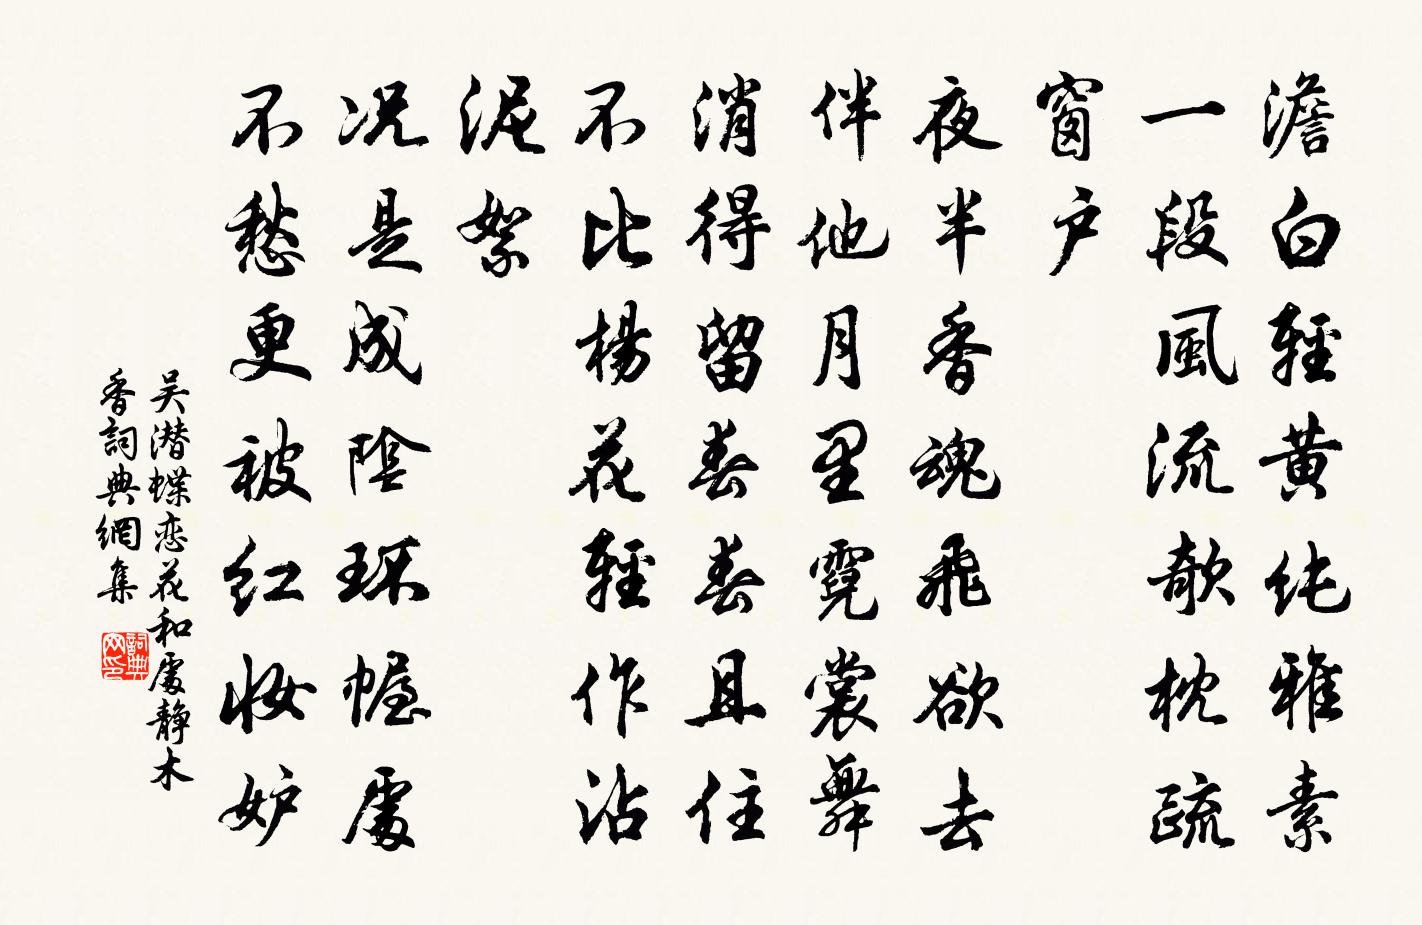 澹白輕黄纯雅素
一段風流欹枕疏
窗户
夜半香魂飛欲去
伴他月里霓裳舞
消得留春春且住
不比楊花輕作沾
泥絮
况是成陰环幄處
不愁更被红妝妒
吴潜蝶恋花和處静木
香詞典網集
詞典网印